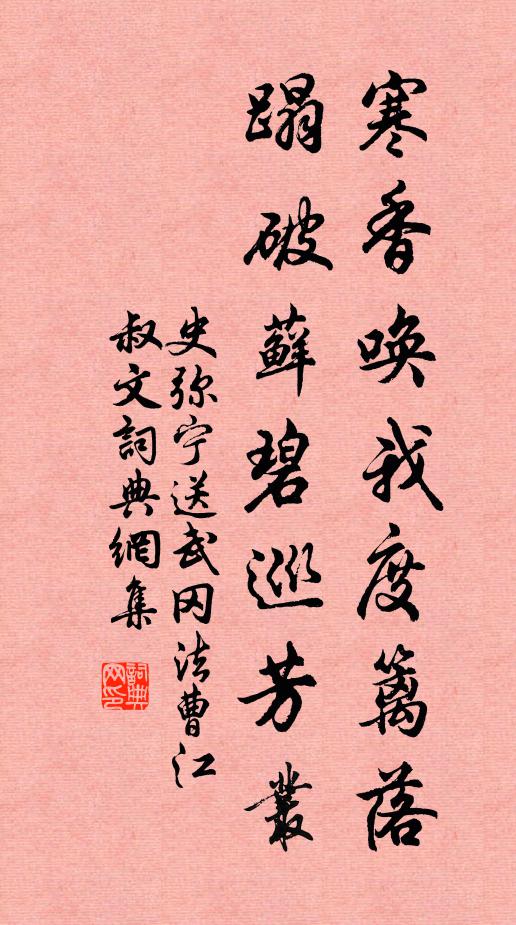 寒香唤我度篱落
蹋破藓碧巡芳叢
史弥宁送武冈法曹江
叔文詞典網集
詞典网印